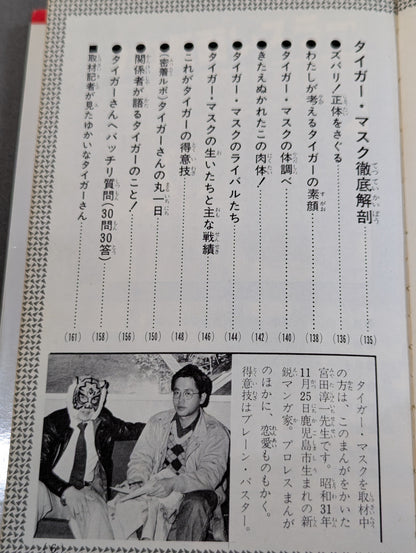 タイガー・マスク徹底解剖……(135)
●ズバリ！正体をさぐる……(136)
●わたしが考えるタイガーの素顔……(138)
●タイガー・マスクの体調べ……(140)
●きたえぬかれたこの肉体！……(142)
●タイガー・マスクのライバルたち……(144)
●タイガー・マスクの生いたちと主な戦績……(146)
●これがタイガーの得意技……(148)
●〔密着ルポ〕タイガーさんの丸一日……(150)
●関係者が語るタイガーのこと！……(156)
●タイガーさんへバッチリ質問（30問30答）……(158)
■取材記者が見たゆかいなタイガーさん……(161)
タイガー・マスクを取材中
の方は、このまんがをかいた
宮田淳一先生です。昭和31年
11月25日鹿児島市生まれの新
鋭マンガ家。プロレスまんが
のほかに、恋愛ものもかく。
得意技はブレーン・バスター。
6